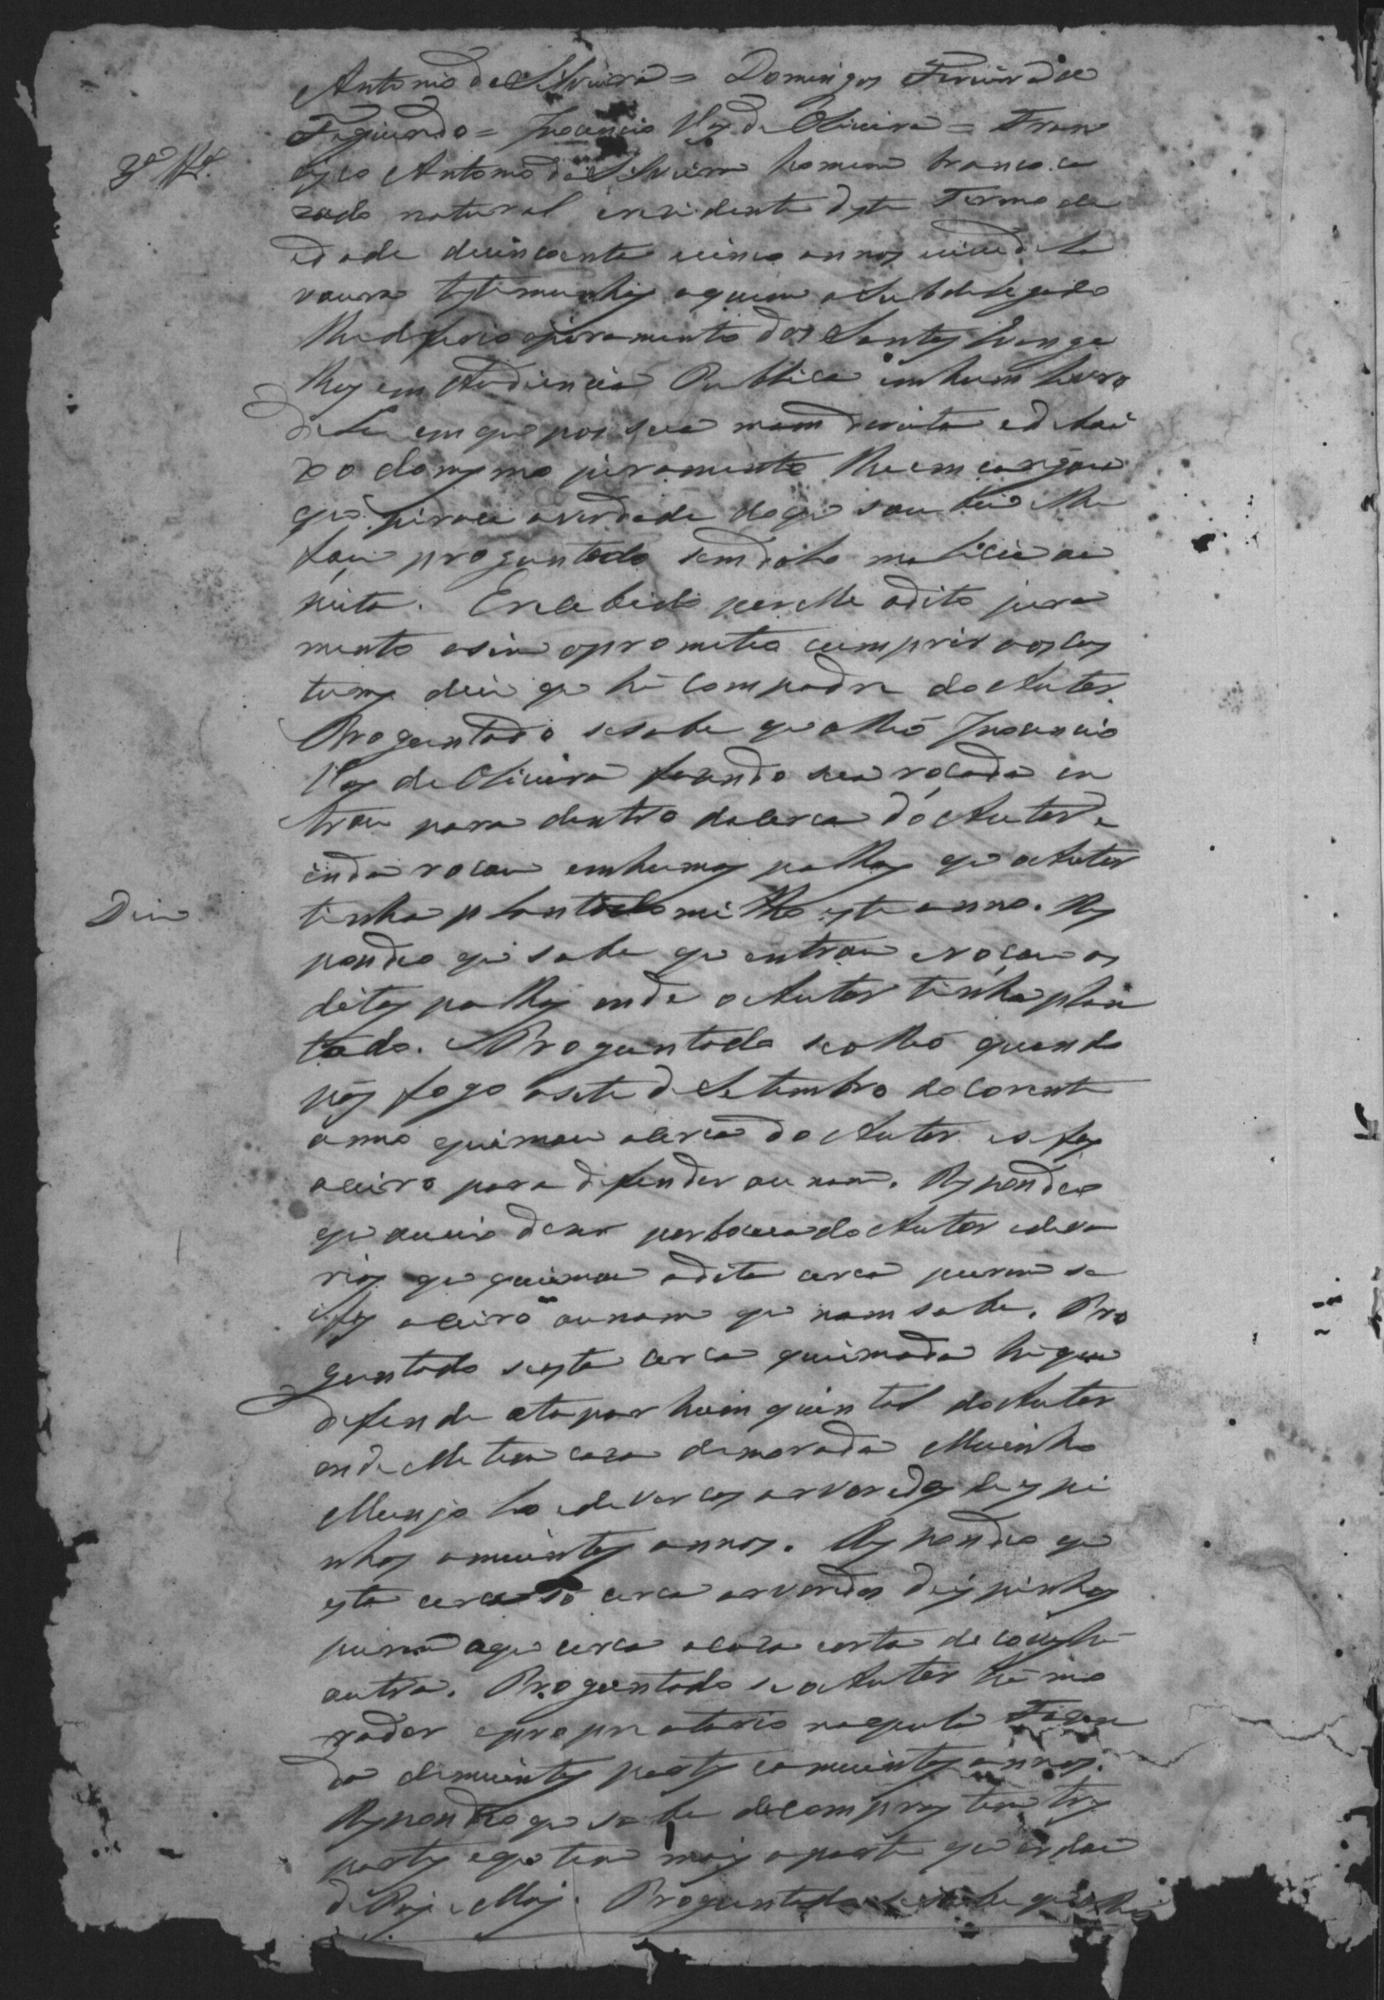 Antonio da Silveira = Domingos Ferreira de
Figueiredo = Inocencio Vaz de Oliveira = Fran
3ª
cisco Antonio da Silveira homem branco ca
zado natural e rezidente deste Termo de
edade de cincoenta e cinco annos vive de la
voura testemunha aquem o Subdelegado
lhe deferio o juramento dos Santos Evange
lhos em Audiencia Publica em hum livro
delles em que pos sua mam direita e debai
xo do mesmo juramento lhe encarregou
que jurace a verdade do que soubece e lhe
fou proguntado sem dolo malicia ou
Erecebido por elle o dito jura
mento asim o prometeo cumprir aos cos
tumes dice que hé compadre do Autor
Proguntado se sabe que o Reo Inocencio
Vaz de Oliveira fazendo sua roçada en
trou para dentro da cerca do Autor e
inda roçou em humas palhas que o Autor
Dice
tinha plantado milho este anno. Res
pondeo que sabe que entrou e roçou as
ditas palhas onde o Autor tinha plan
tado. Proguntado se o Reo quando
pos fogo a sete de Setembro do corente
anno queimou a cerca do Autor e se fez
aceiro para defender ou nam. Respondeo
que ouvio dizer por boca do Autor e de va
rios que queimou a dita cerca porem se
fez aceiro ou nam que nam sabe. Pro
guntado se esta cerca queimada hé que
defende e tapa hum quintal do Autor
onde elle tem caza de morada Muinho
Monjolo e de varios arvoredos de espi
nhos a muintos annos. Respondeo que
esta cerca só cerca arvoredos de espinhos
porem a que cerca a caza
outra. Proguntado se o Autor hé mo
rador e proprietario naquela Fazen
da de muintas partes e a muintos annos.
Respondeo que sabe de compras tem tres
partes e que tem mais a parte que erdou
de Pay e May. Proguntado se sabe que o Reo